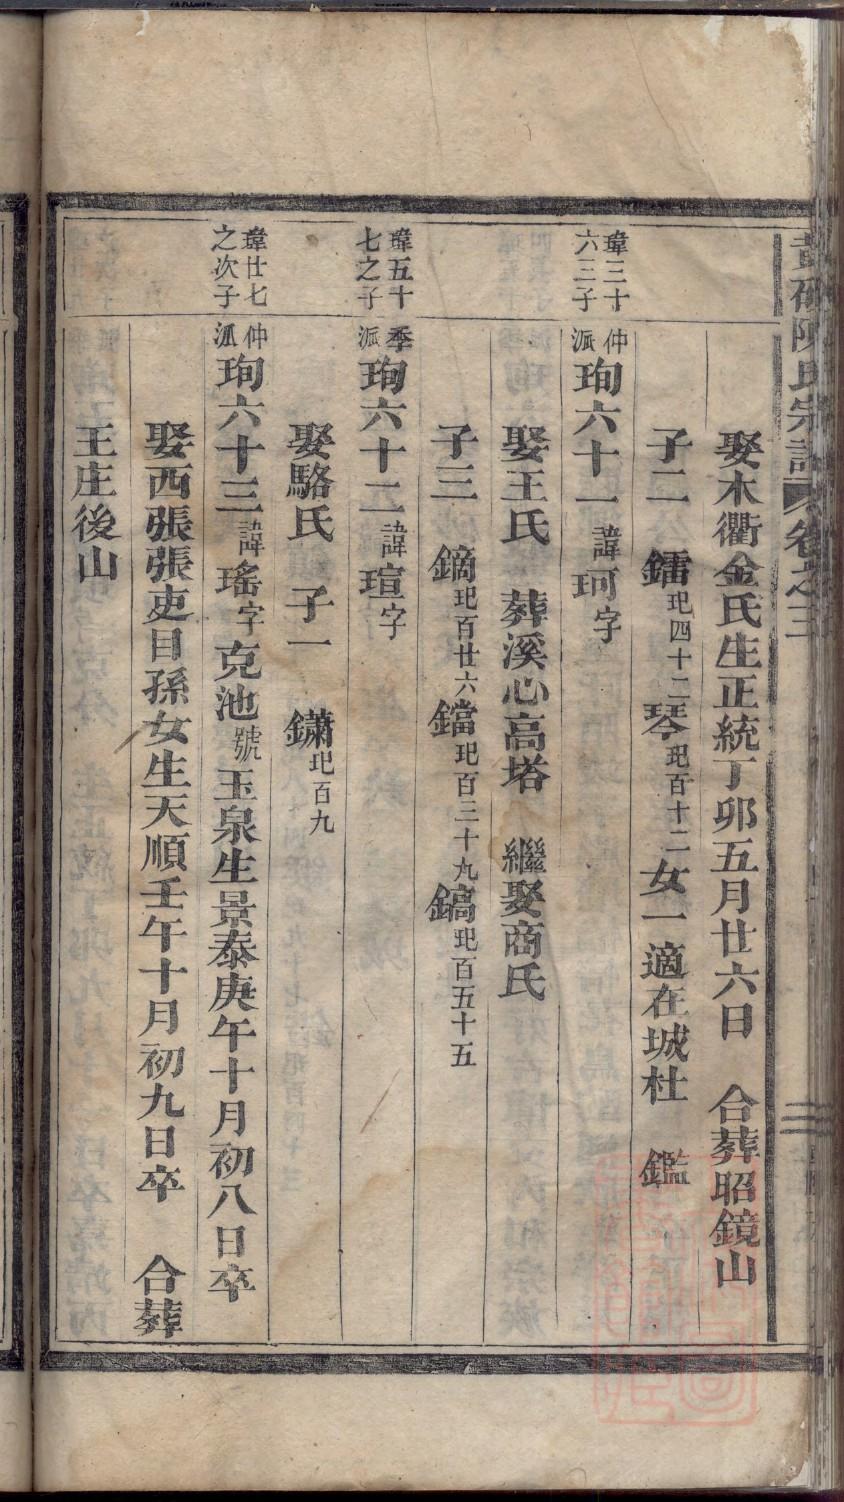 陳氏宗譜 卷之三
娶木衢金氏生正統丁卯五月廿六日 合葬昭鏡山
子二 鐳玘四十二 琴玘百十二 女一適在城杜 鑑
瑋三十六三子
仲派珣六十一諱珂字
娶王氏 葬溪心高塔 繼娶商氏
子三 鏑玘百廿六 鐺玘百三十九 鎬玘百五十五
瑋五十七之子
季派珣六十二諱瑄字
娶駱氏 子一 鏽玘百九
瑋廿七之次子
仲派珣六十三諱瑤字克池號玉泉生景泰庚午十月初八日卒
娶西張張吏目孫女生天順壬午十月初九日卒 合葬
王庄後山